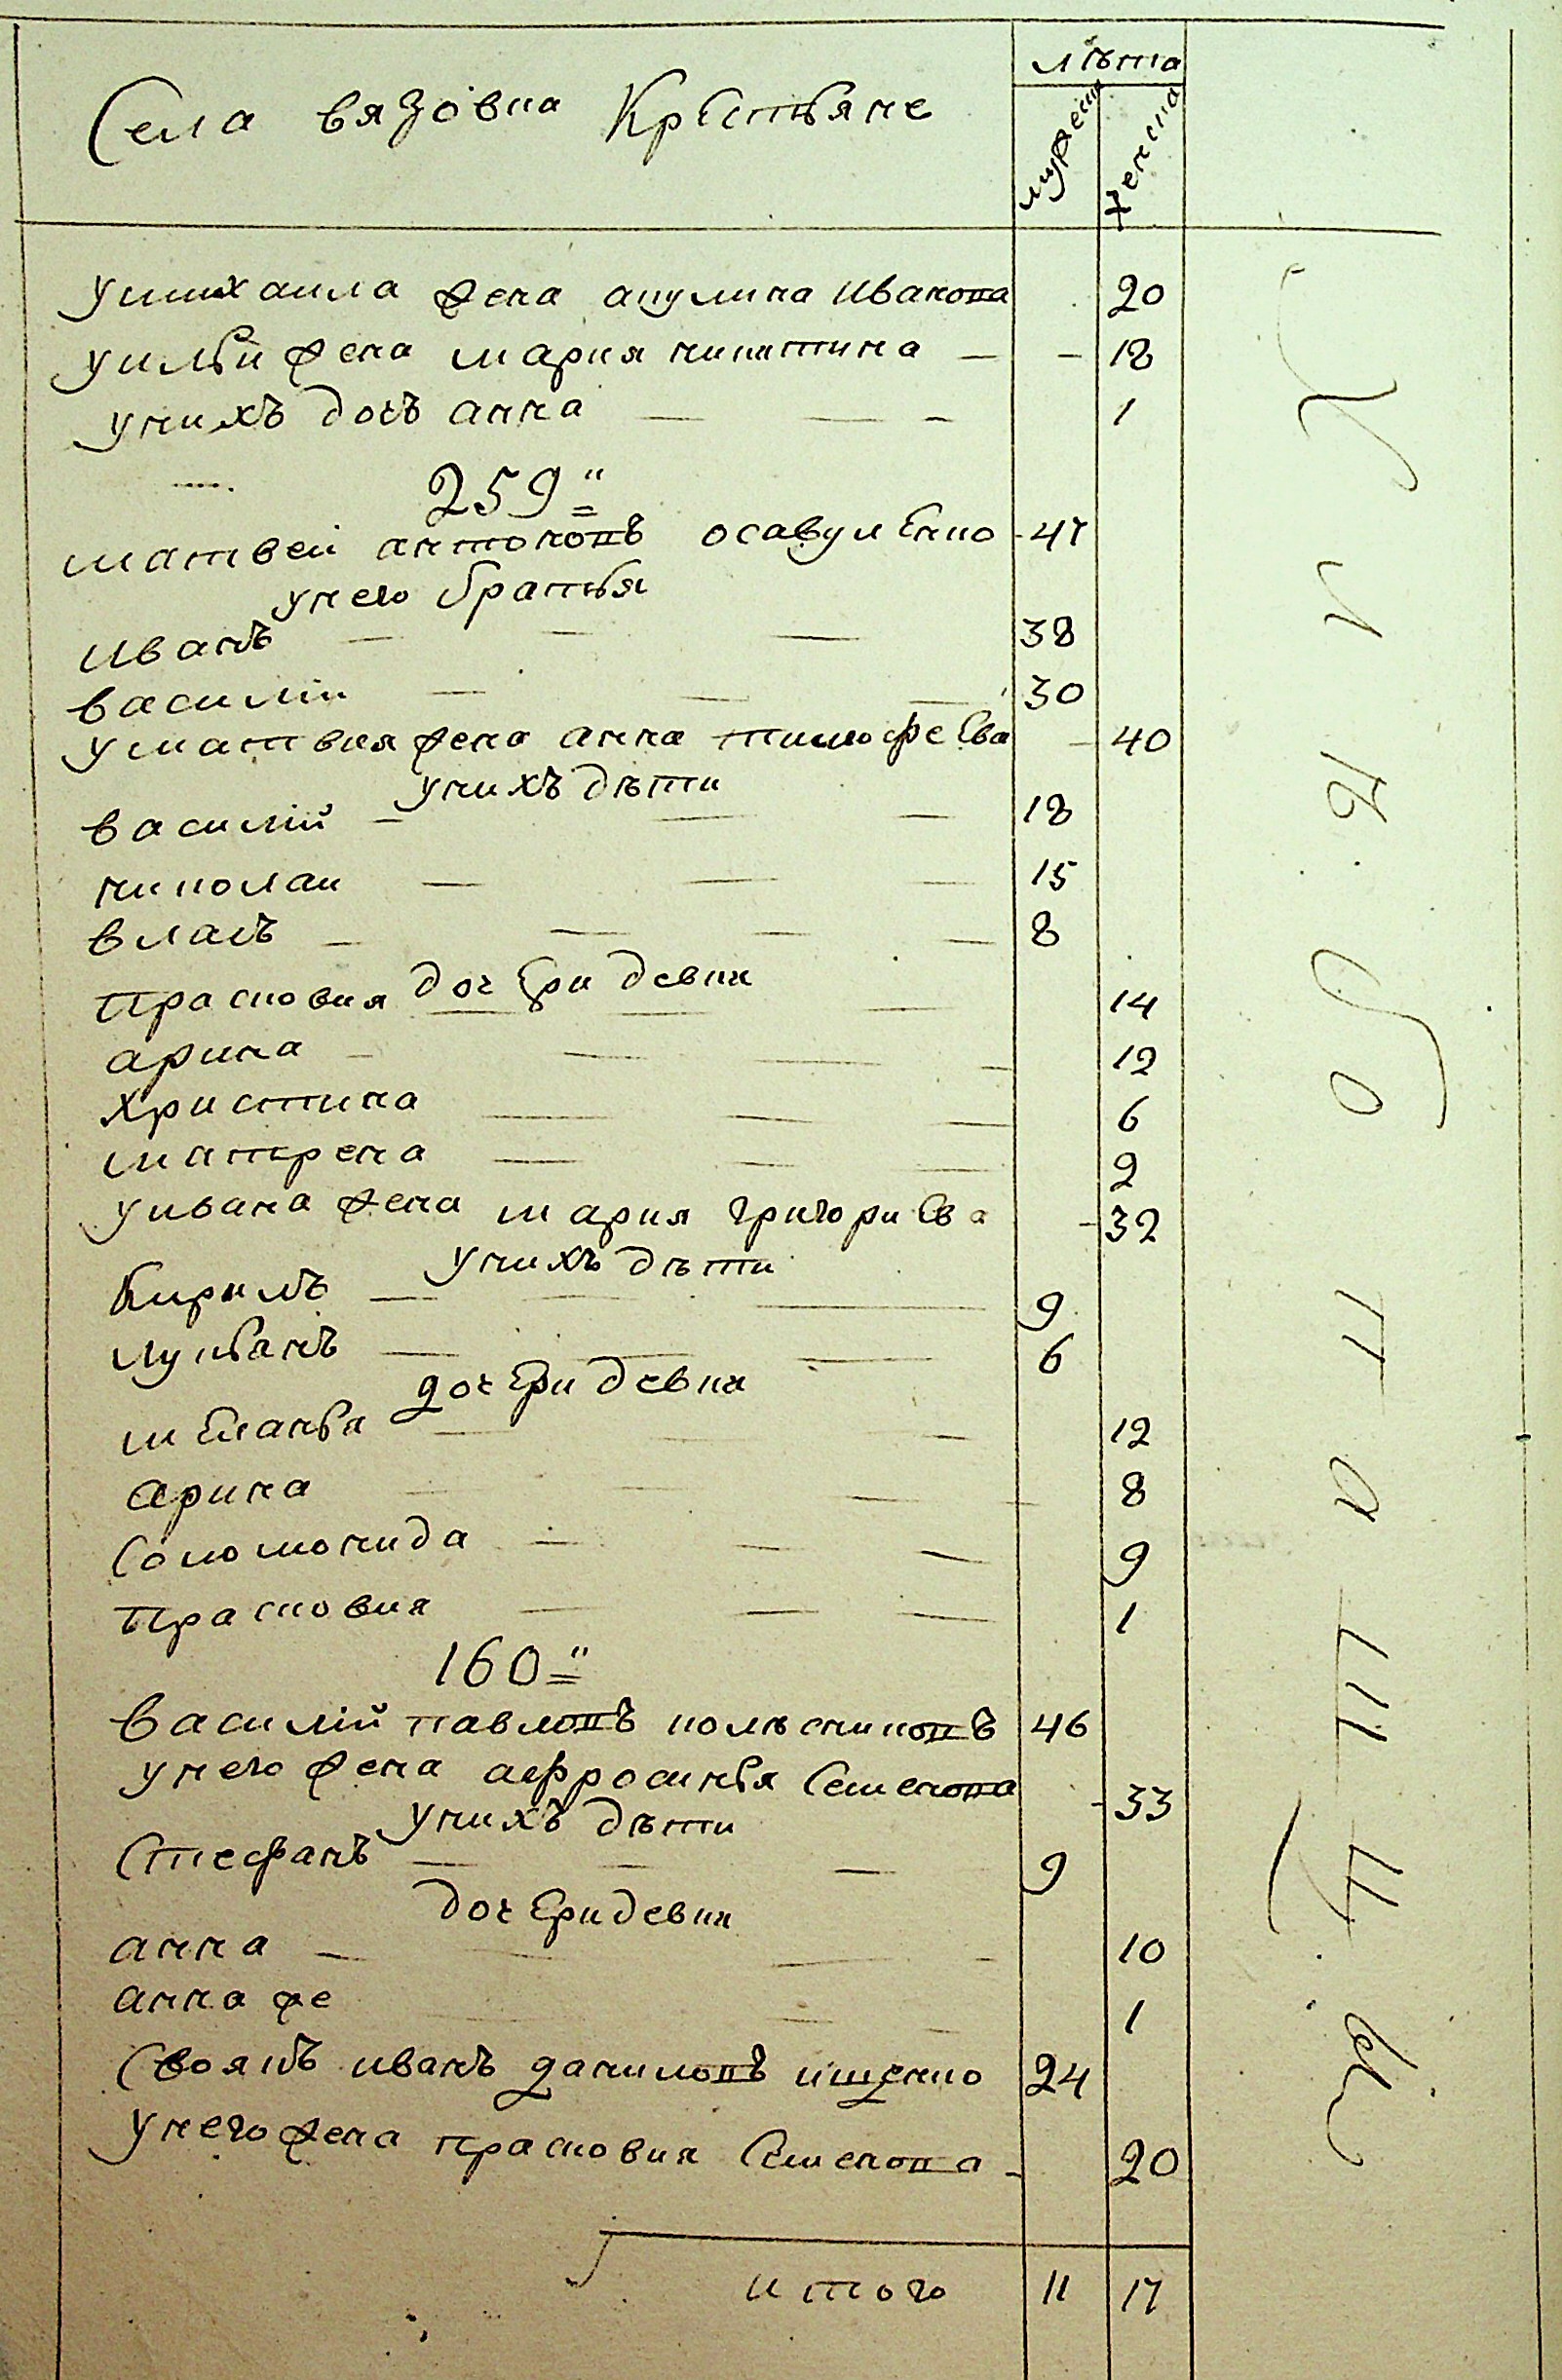 лѣта
Села вязовка Крестьяне
мужеска
женска
умихаила жена акулина Иванова 20
уильи жена мария никитина 18
унихъ дочь анна 1
259"
матвей антоновъ осавуленко 47
унего братья
Иванъ 38
василій 30
уматвия жена анна тимофеева 40
унихъ дѣти
василій 18
николаи 15
власъ 8
дочери девки
прасковия 14
арина 12
христина 6
матрена 2
уивана жена мария григориева 32
унихъ дѣти
Кирилъ 9
лукьянъ 6
дочери девки
меланья 12
арина 8
Соломонида 9
прасковия 1
160"
василій павловъ колесниковъ 46
унего жена аефросинья Семенова 33
унихъ дѣти
Стефанъ 9
дочери девки
анна 10
анна же 1
Своякъ иванъ даниловъ ищенко 24
унего жена прасковия Семенова 20
итого 11 17